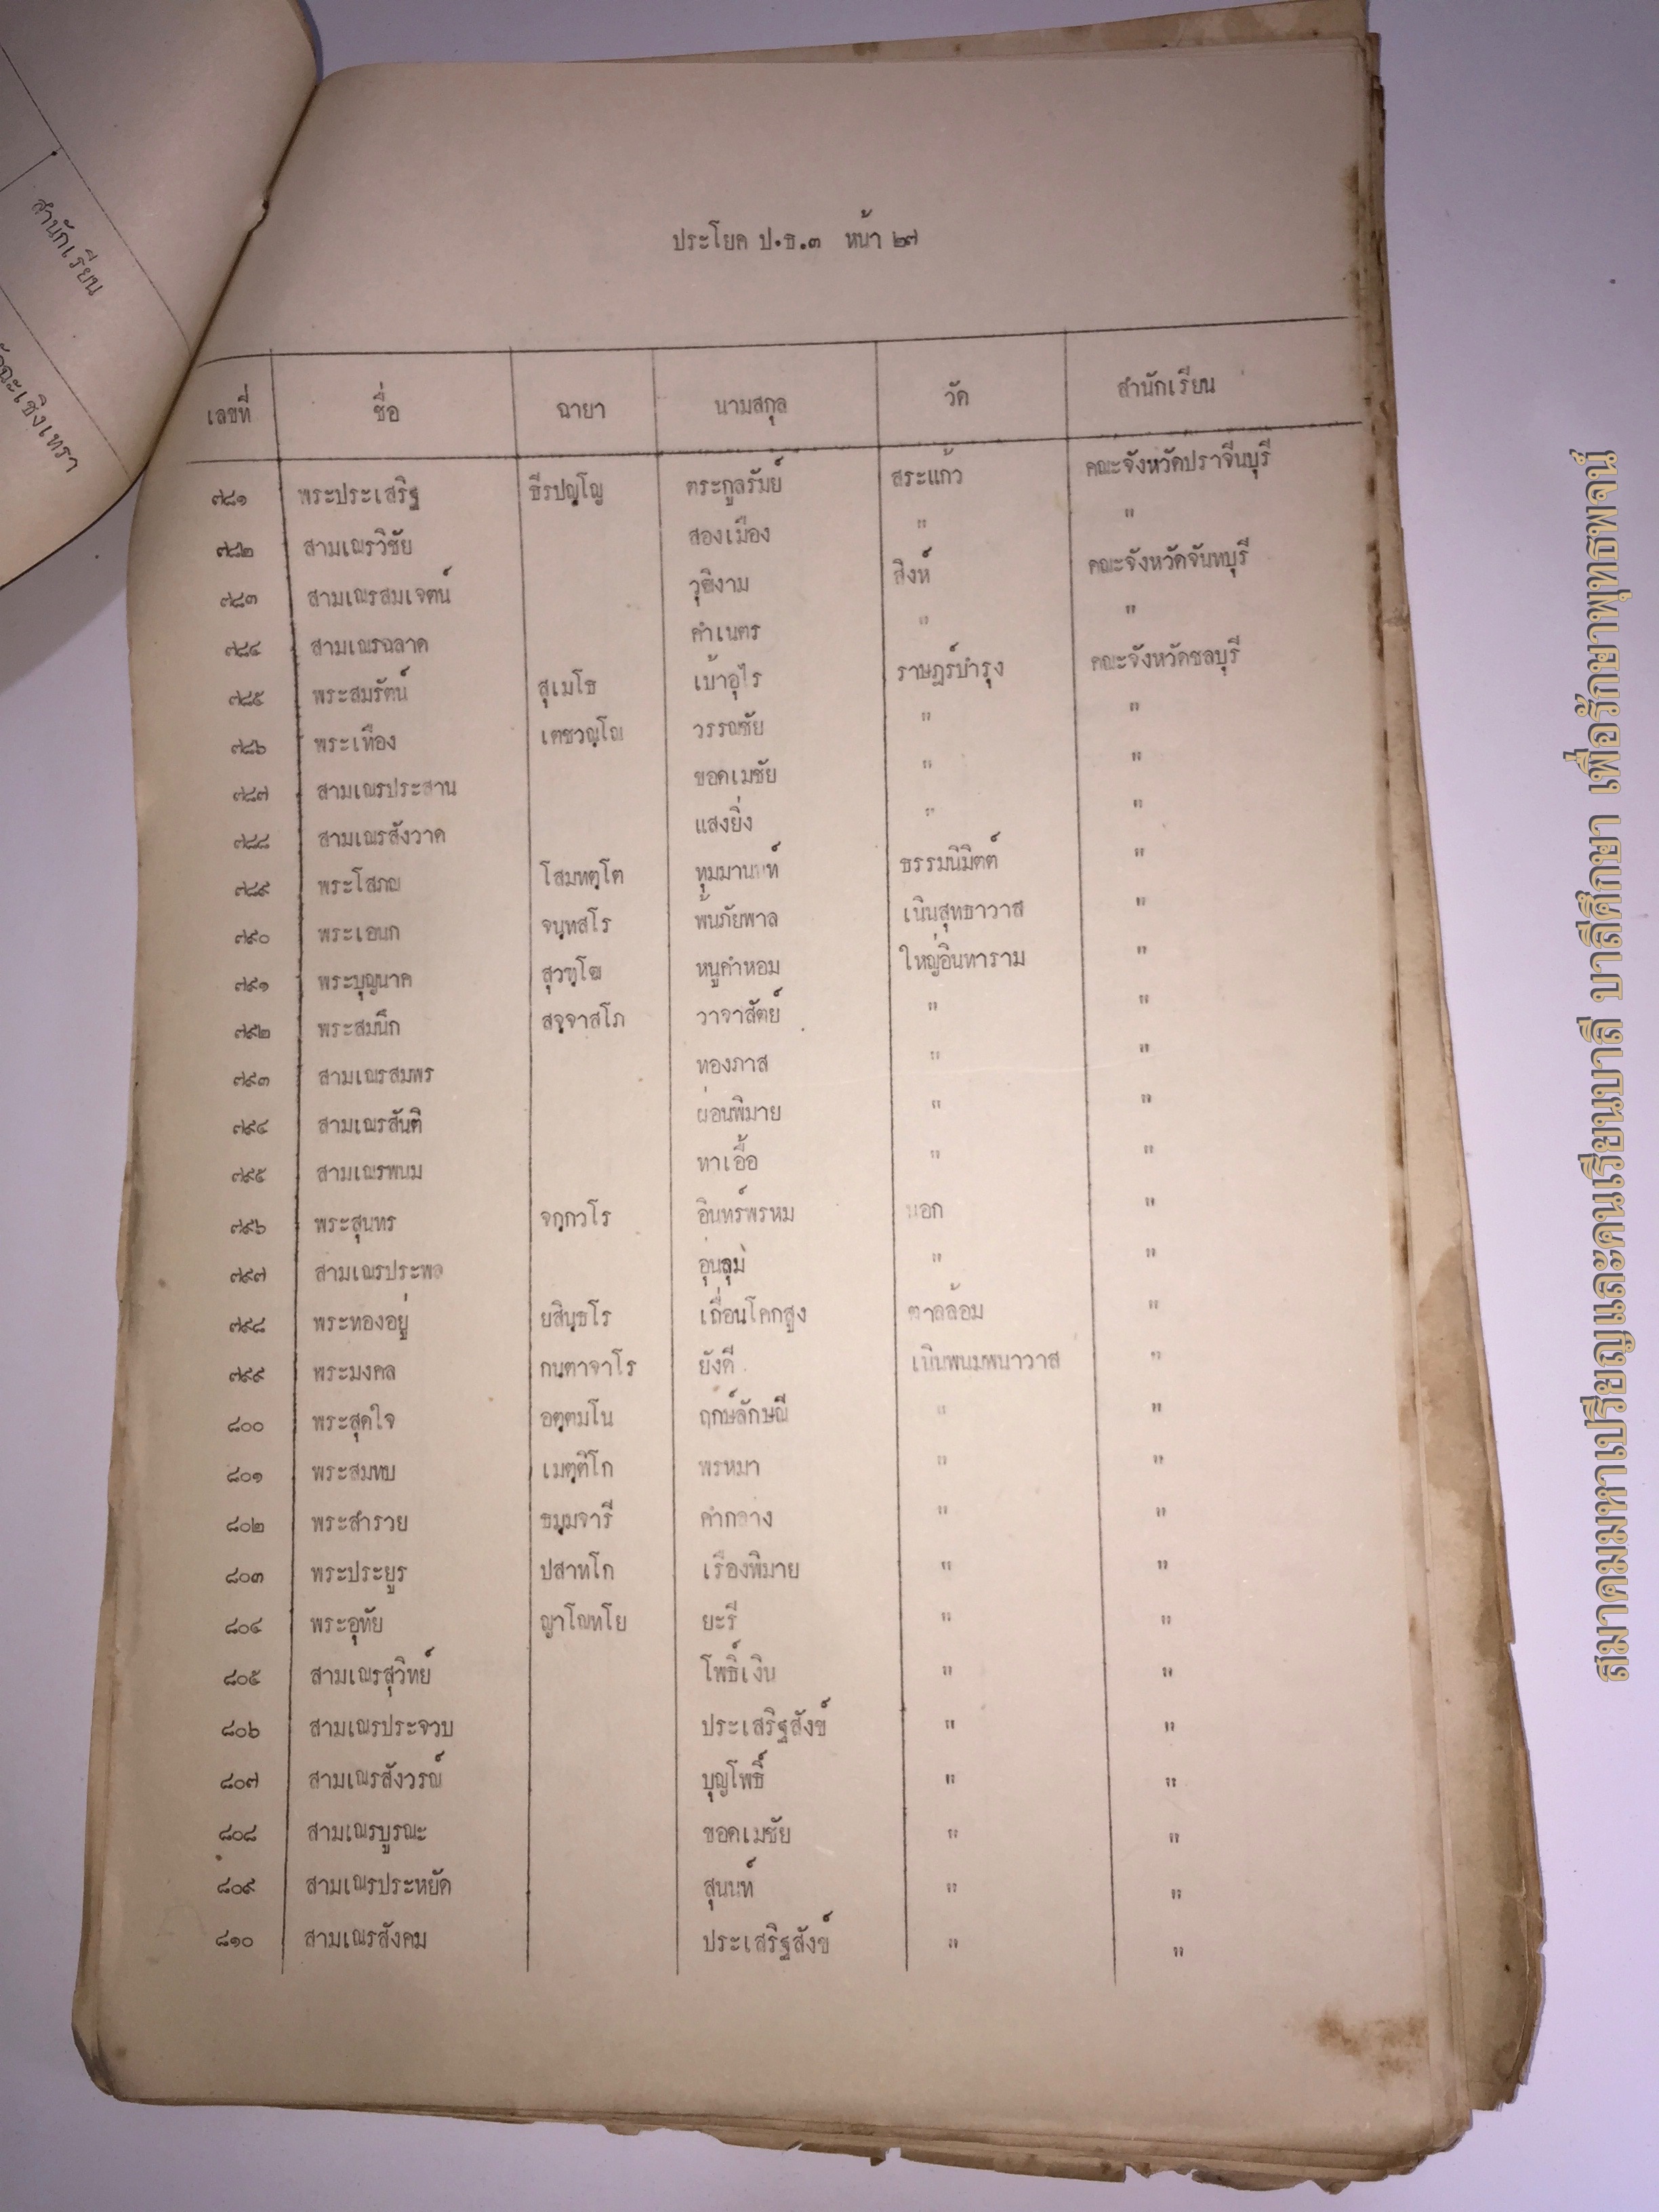 สำนักเรียน
ฉะเชิงเทรา
ประโยค ป.ธ.๓ หน้า ๒๗
เลขที่ ชื่อ ฉายา นามสกุล วัด สำนักเรียน
๗๘๑ พระประเสริฐ ธีรปญฺโญ ตระกูลรัมย์ สระแก้ว คณะจังหวัดปราจีนบุรี
๗๘๒ สามเณรวิชัย สองเมือง " "
๗๘๓ สามเณรสมเจตน์ วุฒิงาม สิงห์ คณะจังหวัดจันทบุรี
๗๘๔ สามเณรฉลาด คำเนตร " "
๗๘๕ พระสมรัตน์ สุเมโธ เบ้าอุไร ราษฎร์บำรุง คณะจังหวัดชลบุรี
๗๘๖ พระเทือง เตชวณฺโณ วรรณชัย " "
๗๘๗ สามเณรประสาน ขอดเมชัย " "
๗๘๘ สามเณรสังวาด แสงยิ่ง " "
๗๘๙ พระโสภณ โสมทตฺโต ทุมมานนท์ ธรรมนิมิตต์ "
๗๙๐ พระเอนก จนฺทสโร พ้นภัยพาล เนินสุทธาวาส "
๗๙๑ พระบุญนาค สุวฑฺโฒ หนูคำหอม ใหญ่อินทาราม "
๗๙๒ พระสมนึก สจฺจาสโภ วาจาสัตย์ " "
๗๙๓ สามเณรสมพร ทองภาส " "
๗๙๔ สามเณรสันติ ผ่อนพิมาย " "
๗๙๕ สามเณรพนม ทาเอื้อ " "
๗๙๖ พระสุนทร จกฺกวโร อินทร์พรหม นอก "
๗๙๗ สามเณรประพล อุ่นลุม " "
๗๙๘ พระทองอยู่ ยสินฺธโร เถื่อนโคกสูง ตาลล้อม "
๗๙๙ พระมงคล กนตาจาโร ยังดี เนินพนมพนาวาส "
๘๐๐ พระสุดใจ อตฺตมโน ฤกษ์ลักษณี " "
๘๐๑ พระสมทบ เมตฺติโก พรหมา " "
๘๐๒ พระสำรวย ธมฺมจารี คำกลาง " "
๘๐๓ พระประยูร ปสาทโก เรืองพิมาย " "
๘๐๔ พระอุทัย ญาโณทโย ยะรี " "
๘๐๕ สามเณรสุวิทย์ โพธิ์เงิน " "
๘๐๖ สามเณรประจวบ ประเสริฐสังข์ " "
๘๐๗ สามเณรสังวรณ์ บุญโพธิ์ " "
๘๐๘ สามเณรบูรณะ ขอดเมชัย " "
๘๐๙ สามเณรประหยัด สุนนท์ " "
๘๑๐ สามเณรสังคม ประเสริฐสังข์ " "
สมาคมมหาเปรียญและคนเรียนบาลี บาลีศึกษา เพื่อรักษาพุทธพจน์